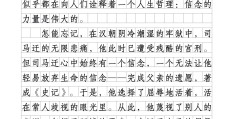 似乎都在向人们诠释着一个人生哲理：信念的
力量是伟大的。
怎能忘记，在汉朝阴冷潮湿的牢狱中，司
马迁的无限悲痛，他此时已遭受残酷的宫刑。
但司马迁心中始终有一个信念，一个无法让他
轻易放弃生命的信念——完成父亲的遗愿。著
成《史记》。于是，他选择了屈辱地活着，活
在常人歧视的眼光里。从此，他蔑视了别人的